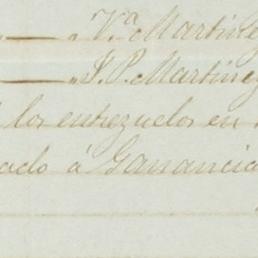 " — " Va Martinez
— " J. P. Martinez
los entrezuelos en
ado á Ganancia